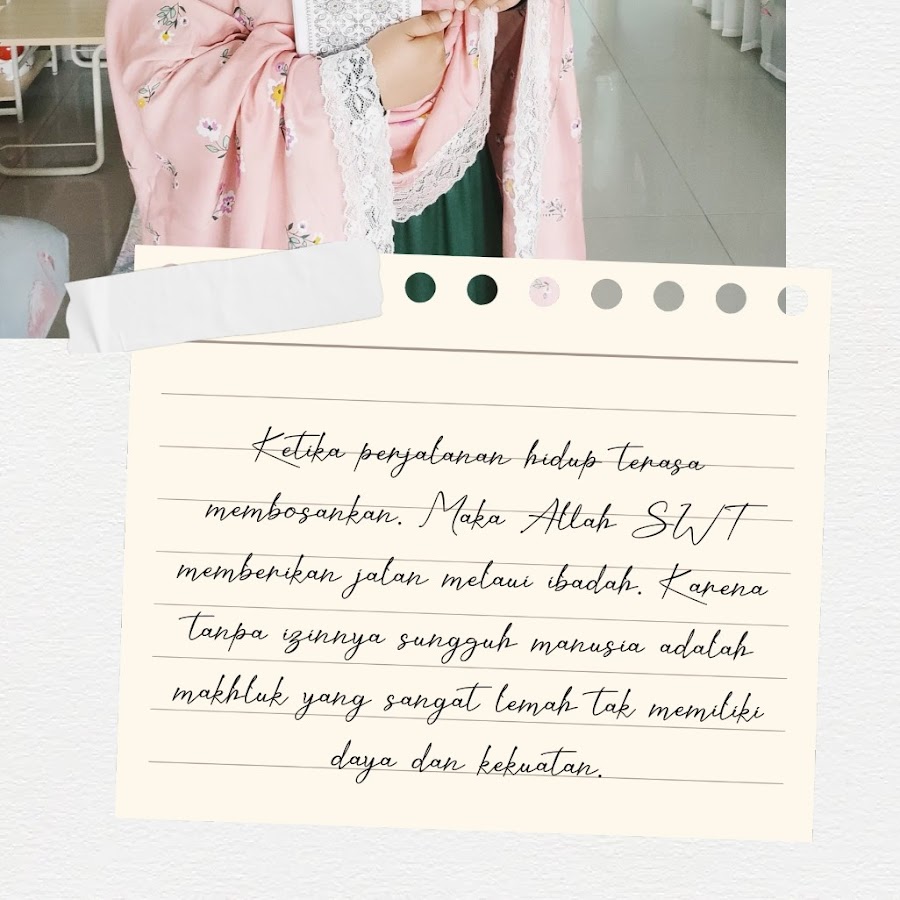 Ketika perjalanan hidup terasa
membosankan. Maka Allah SWT
memberikan jalan melaui ibadah. Karena
tanpa izinnya sungguh manusia adalah
makhluk yang sangat lemah tak memiliki
daya dan kekuatan.